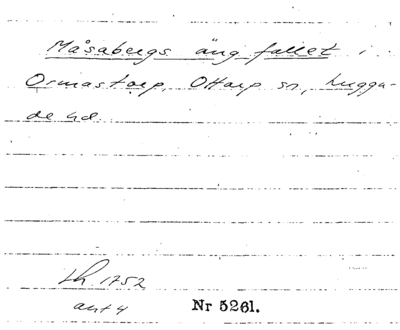 Måsabergs äng fallet i
Ormastorp, Ottarp sn, Luggu-
de hd.
Lh. 1752
akt 4
Nr 5261.